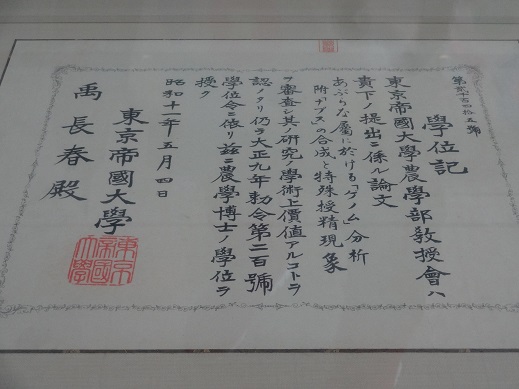 學位記
東京帝國大學農學部教授會ハ
貴下ノ提出ニ係ル論文
あぶらな屬に於ける「ゲノム」分析
附ナプスの合成と特殊授精現象
ヲ審査シ其ノ研究ノ學術上價値アルコトヲ
認メタリ仍テ大正九年勅令第二百號
學位令ニ依リ茲ニ農學博士ノ學位ヲ
授ク
昭和十一年五月四日
東京帝國大學
東京帝國大學
禹長春殿